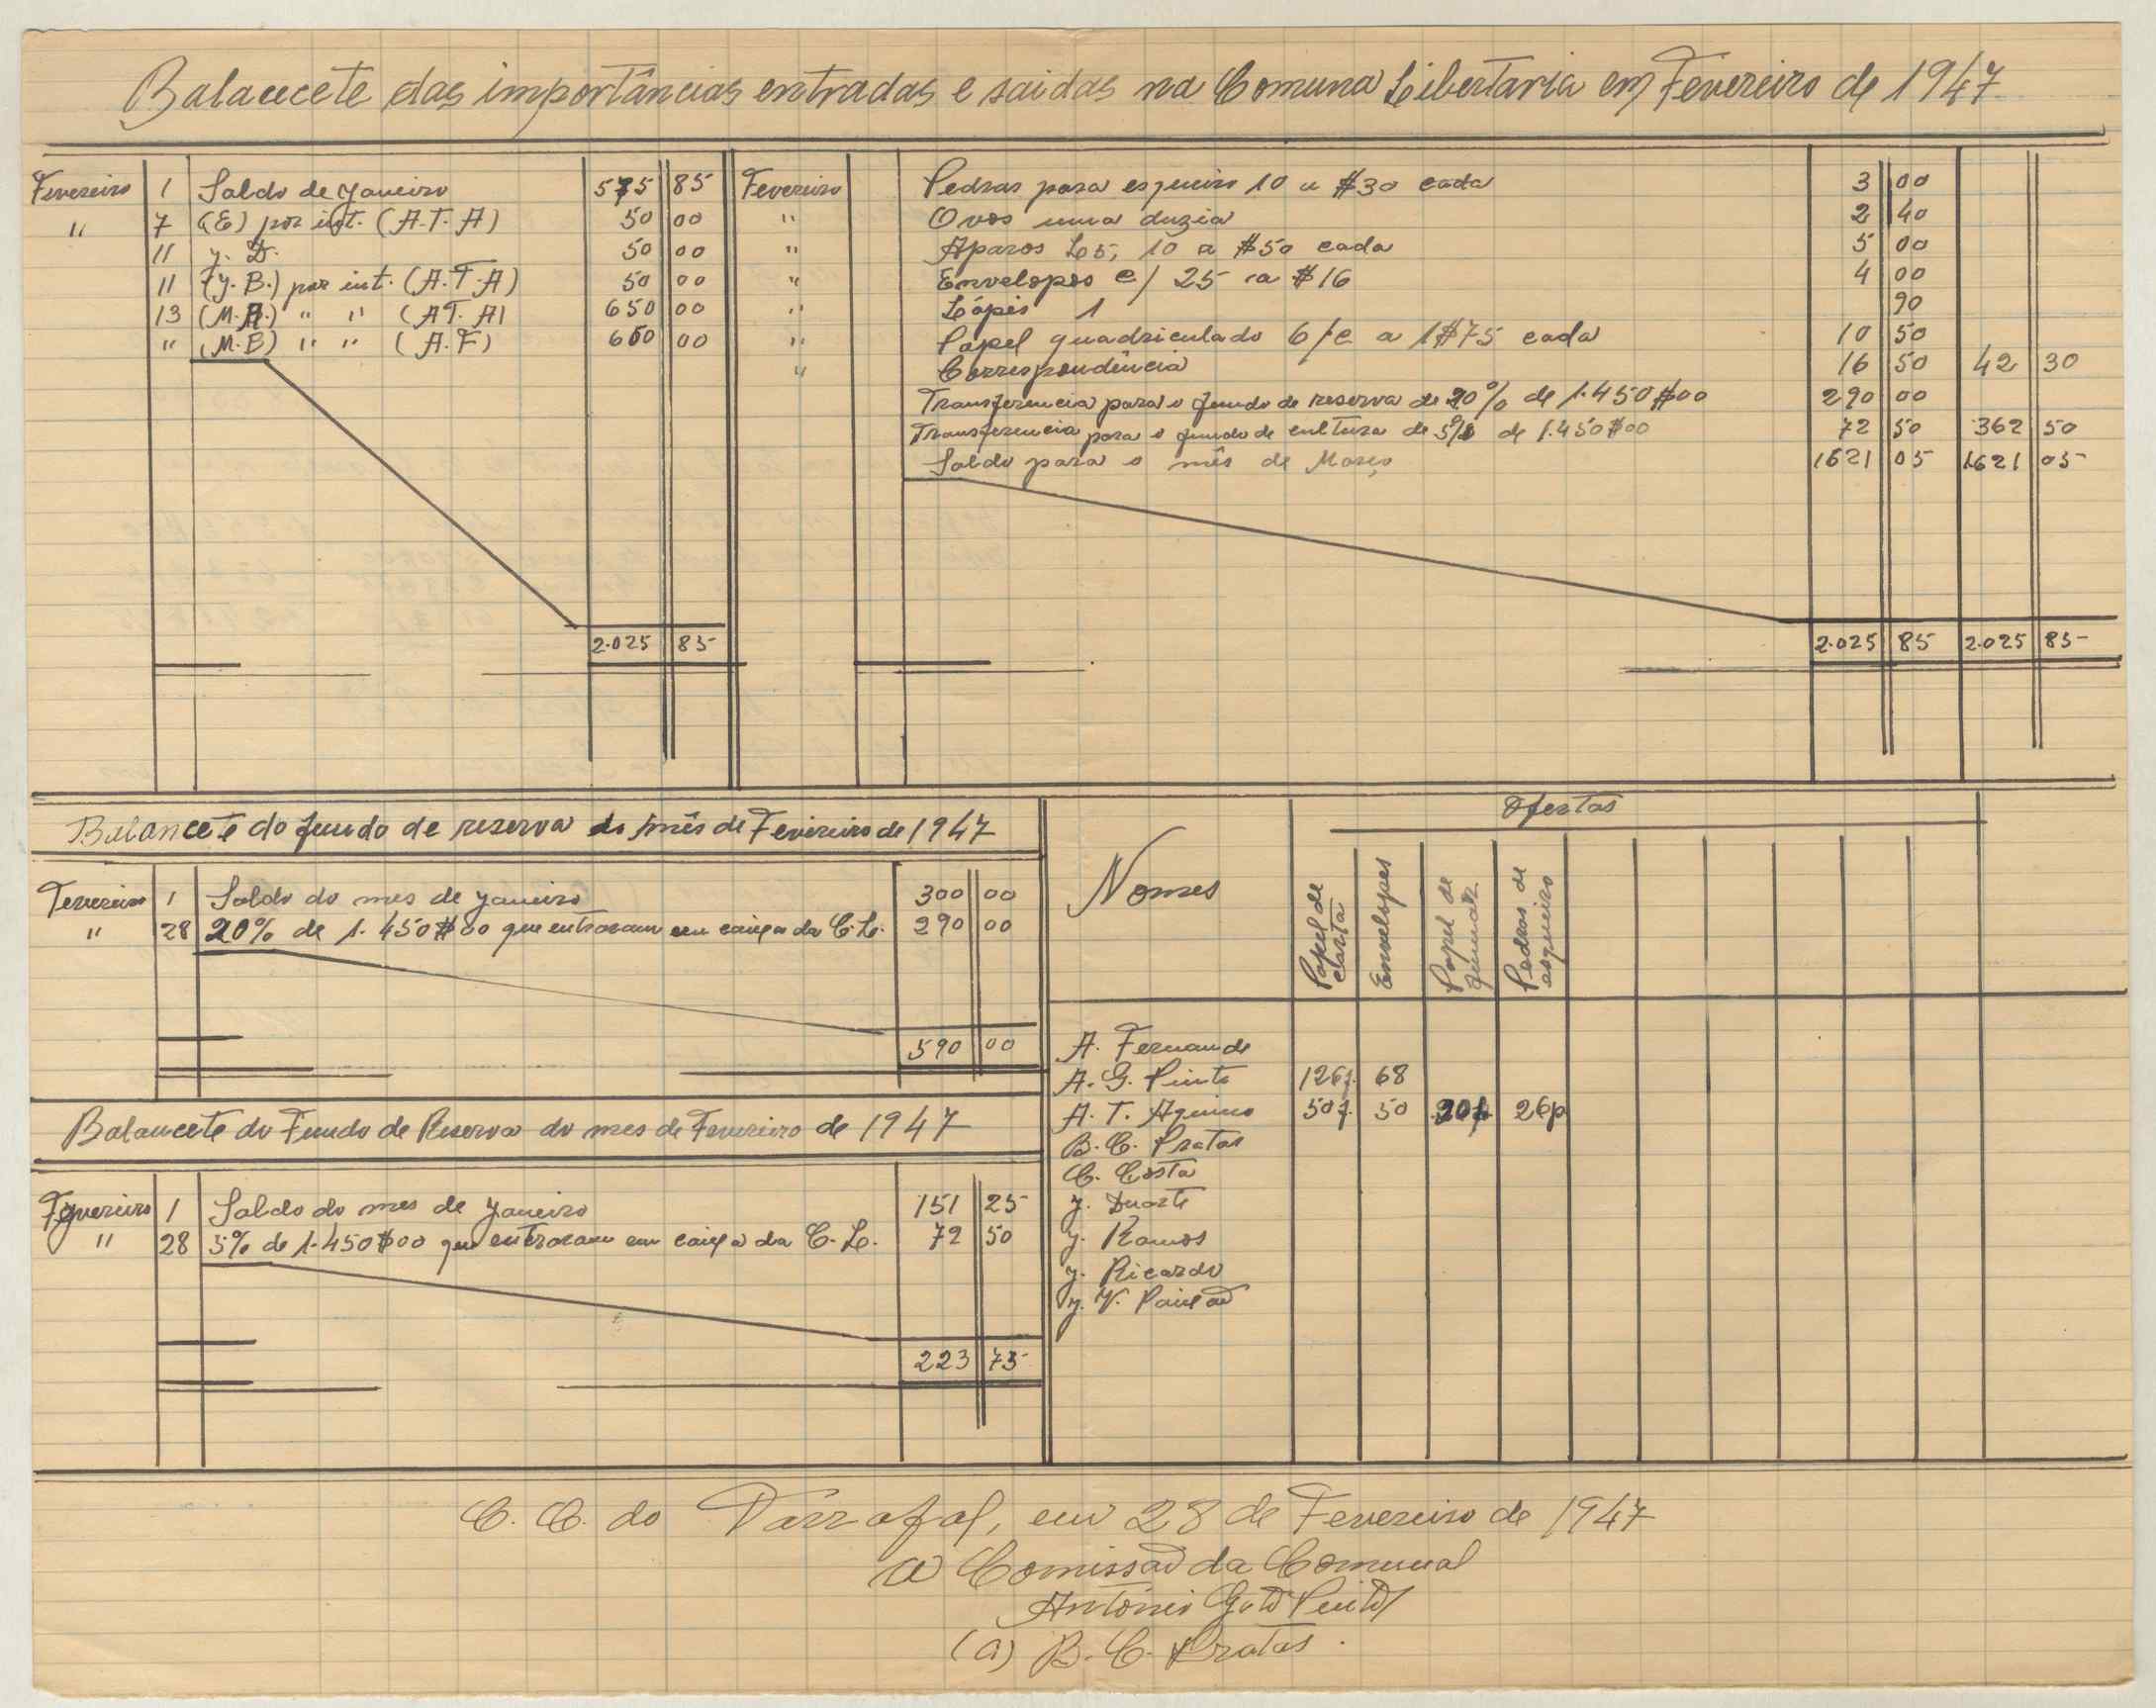 Balancete das importâncias entradas e saidas na Comuna Libertaria em Fevereiro de 1947
Fevereiro 1 Saldo de Janeiro 575 85
" 7 (E) por int. (A.T.A) 50 00
11 J. D. 50 00
11 (J.B.) por int. (A.T.A) 50 00
13 (M.R.) " " (A.T.A) 650 00
" (M.B) " " (A.F) 650 00
2.025 85
Fevereiro Pedras para esqueiro 10 a $30 cada 3 00
" Ovos uma duzia 2 40
" Aparos L5, 10 a $50 cada 5 00
" Envelopes c/ 25 a $16 4 00
" Lápis 1 90
" Papel quadriculado 6/c a 1$75 cada 10 50
" Correspondência 16 50 42 30
Transferencia para o fundo de reserva de 20% de 1.450$00 290 00
Transferencia para o fundo de cultura de 5% de 1.450$00 72 50 362 50
Saldo para o mês de Março 1621 05 1.621 05
2.025 85 2.025 85
Balancete do fundo de reserva do mês de Fevereiro de 1947
Fevereiro 1 Saldo do mes de Janeiro 300 00
" 28 20% de 1.450$00 que entraram em caixa da C.L. 290 00
590 00
Balancete do Fundo de Reserva do mes de Fevereiro de 1947
Fevereiro 1 Saldo do mes de Janeiro 151 25
" 28 5% de 1.450$00 que entraram em caixa da C.L. 72 50
223 75
Ofertas
Nomes
Papel de carta
Envelopes
Papel de
Pedras de esqueiro
A. Fernande
A. G. Pinto 126f. 68
A. T. Aquino 50f. 50 20f. 26p
B. C. Pratas
C. Costa
J. Duarte
J. Ramos
J. Ricardo
J. V. Paixão
C. C. do Tárrafal, em 28 de Fevereiro de 1947
A Comissão da Comunal
António Gato Pinto
(a) B. C. Pratas.